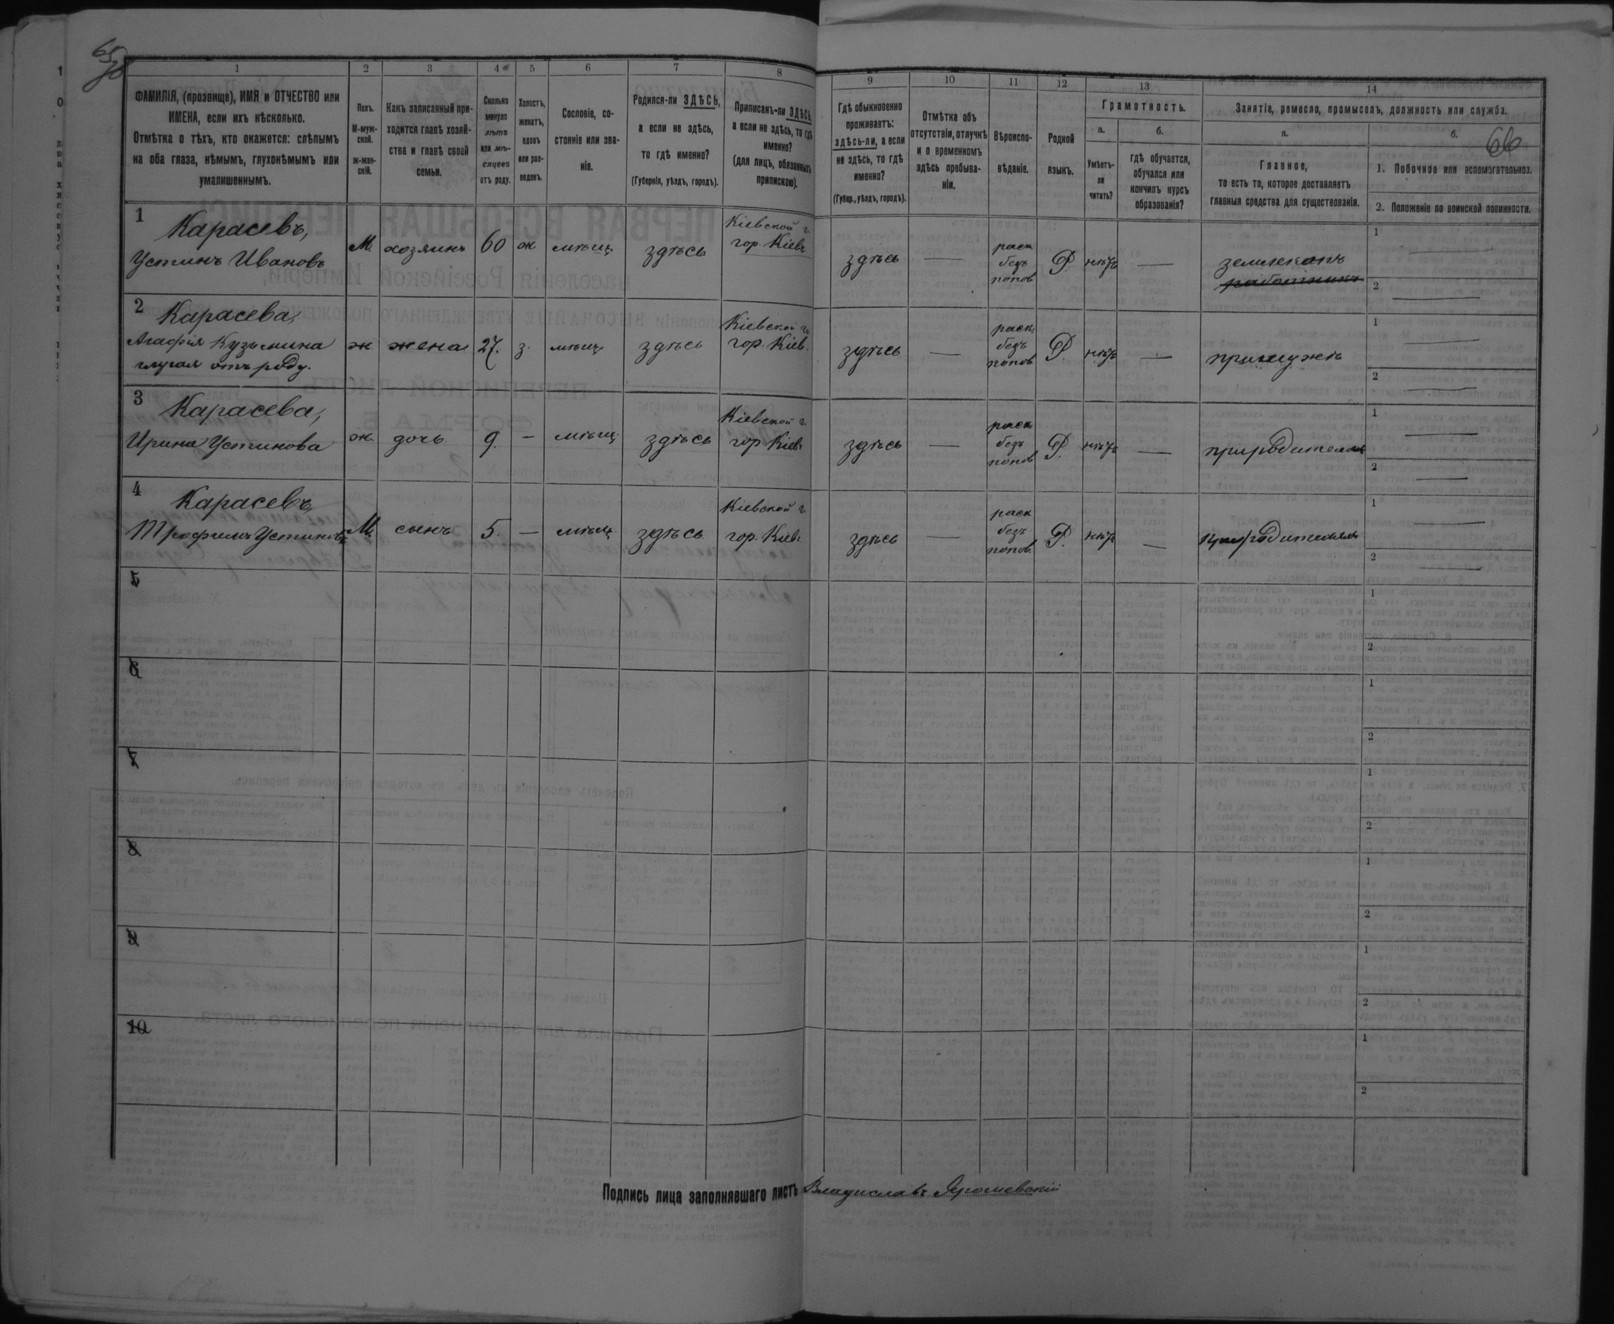 1 2 3 4 5 6 7 8
ФАМИЛІЯ, (прозвище), ИМЯ и ОТЧЕСТВО или
ИМЕНА, если ихъ нѣсколько.
Отмѣтка о тѣхъ, кто окажется: слѣпымъ
на оба глаза, нѣмымъ, глухонѣмымъ или
умалишеннымъ.
Полъ.
М-муж-
ской.
Ж-жен-
скій.
Какъ записанный при-
ходится главѣ хозяй-
ства и главѣ своей
семьи.
Сколько
минуло
лѣтъ
или мѣ-
сяцевъ
отъ роду.
Холостъ,
женатъ,
вдовъ
или раз-
веденъ.
Сословіе, со-
стояніе или зва-
ніе.
Родился-ли ЗДѢСЬ,
а если не здѣсь,
то гдѣ именно?
(Губернія, уѣздъ, городъ).
Приписанъ-ли ЗДѢСЬ,
а если не здѣсь, то гдѣ
именно?
(для лицъ, обязанныхъ
припискою).
9 10 11 12 13 14
Гдѣ обыкновенно
проживаетъ:
здѣсь-ли, а если
не здѣсь, то гдѣ
именно?
(Губер., уѣздъ, городъ).
Отмѣтка объ
отсутствіи, отлучкѣ
и о временномъ
здѣсь пребыва-
ніи.
Вѣроиспо-
вѣданіе.
Родной
языкъ.
Грамотность.
а. б.
Умѣетъ-
ли
читать?
гдѣ обучается,
обучался или
кончилъ курсъ
образованія?
Занятіе, ремесло, промыселъ, должность или служба.
а. б. 66
Главное,
то есть то, которое доставляетъ
главныя средства для существованія.
1. Побочное или вспомогательное.
2. Положеніе по воинской повинности.
1 Карасевъ,
Устинъ Ивановъ М хозяинъ 60 ж мѣщ здѣсь Кіевской г. гор. Кіевъ здѣсь — раск безъ попов Р. нѣтъ — землекопъ
1 —
2 —
2 Карасева,
Агафія Кузьмина
глухая отъ роду. ж жена 27. з. мѣщ здѣсь Кіевской г. гор. Кіев. здѣсь — раск безъ попов Р. нѣтъ — при мужѣ
1 —
2 —
3 Карасева,
Ирина Устинова ж. дочь 9. — мѣщ здѣсь Кіевской г. гор Кіевъ здѣсь — раск безъ попов Р. нѣтъ — при родителяхъ
1 —
2 —
4 Карасевъ
Трофимъ Устиновъ М. сынъ 5. — мѣщ здѣсь Кіевской г. гор. Кіев. здѣсь — раск безъ попов Р. нѣтъ — при родителяхъ
1 —
2 —
5 1
2
6 1
2
7 1
2
8 1
2
9 1
2
10 1
2
Подпись лица заполнявшаго листъ Владиславъ Ярошевскій